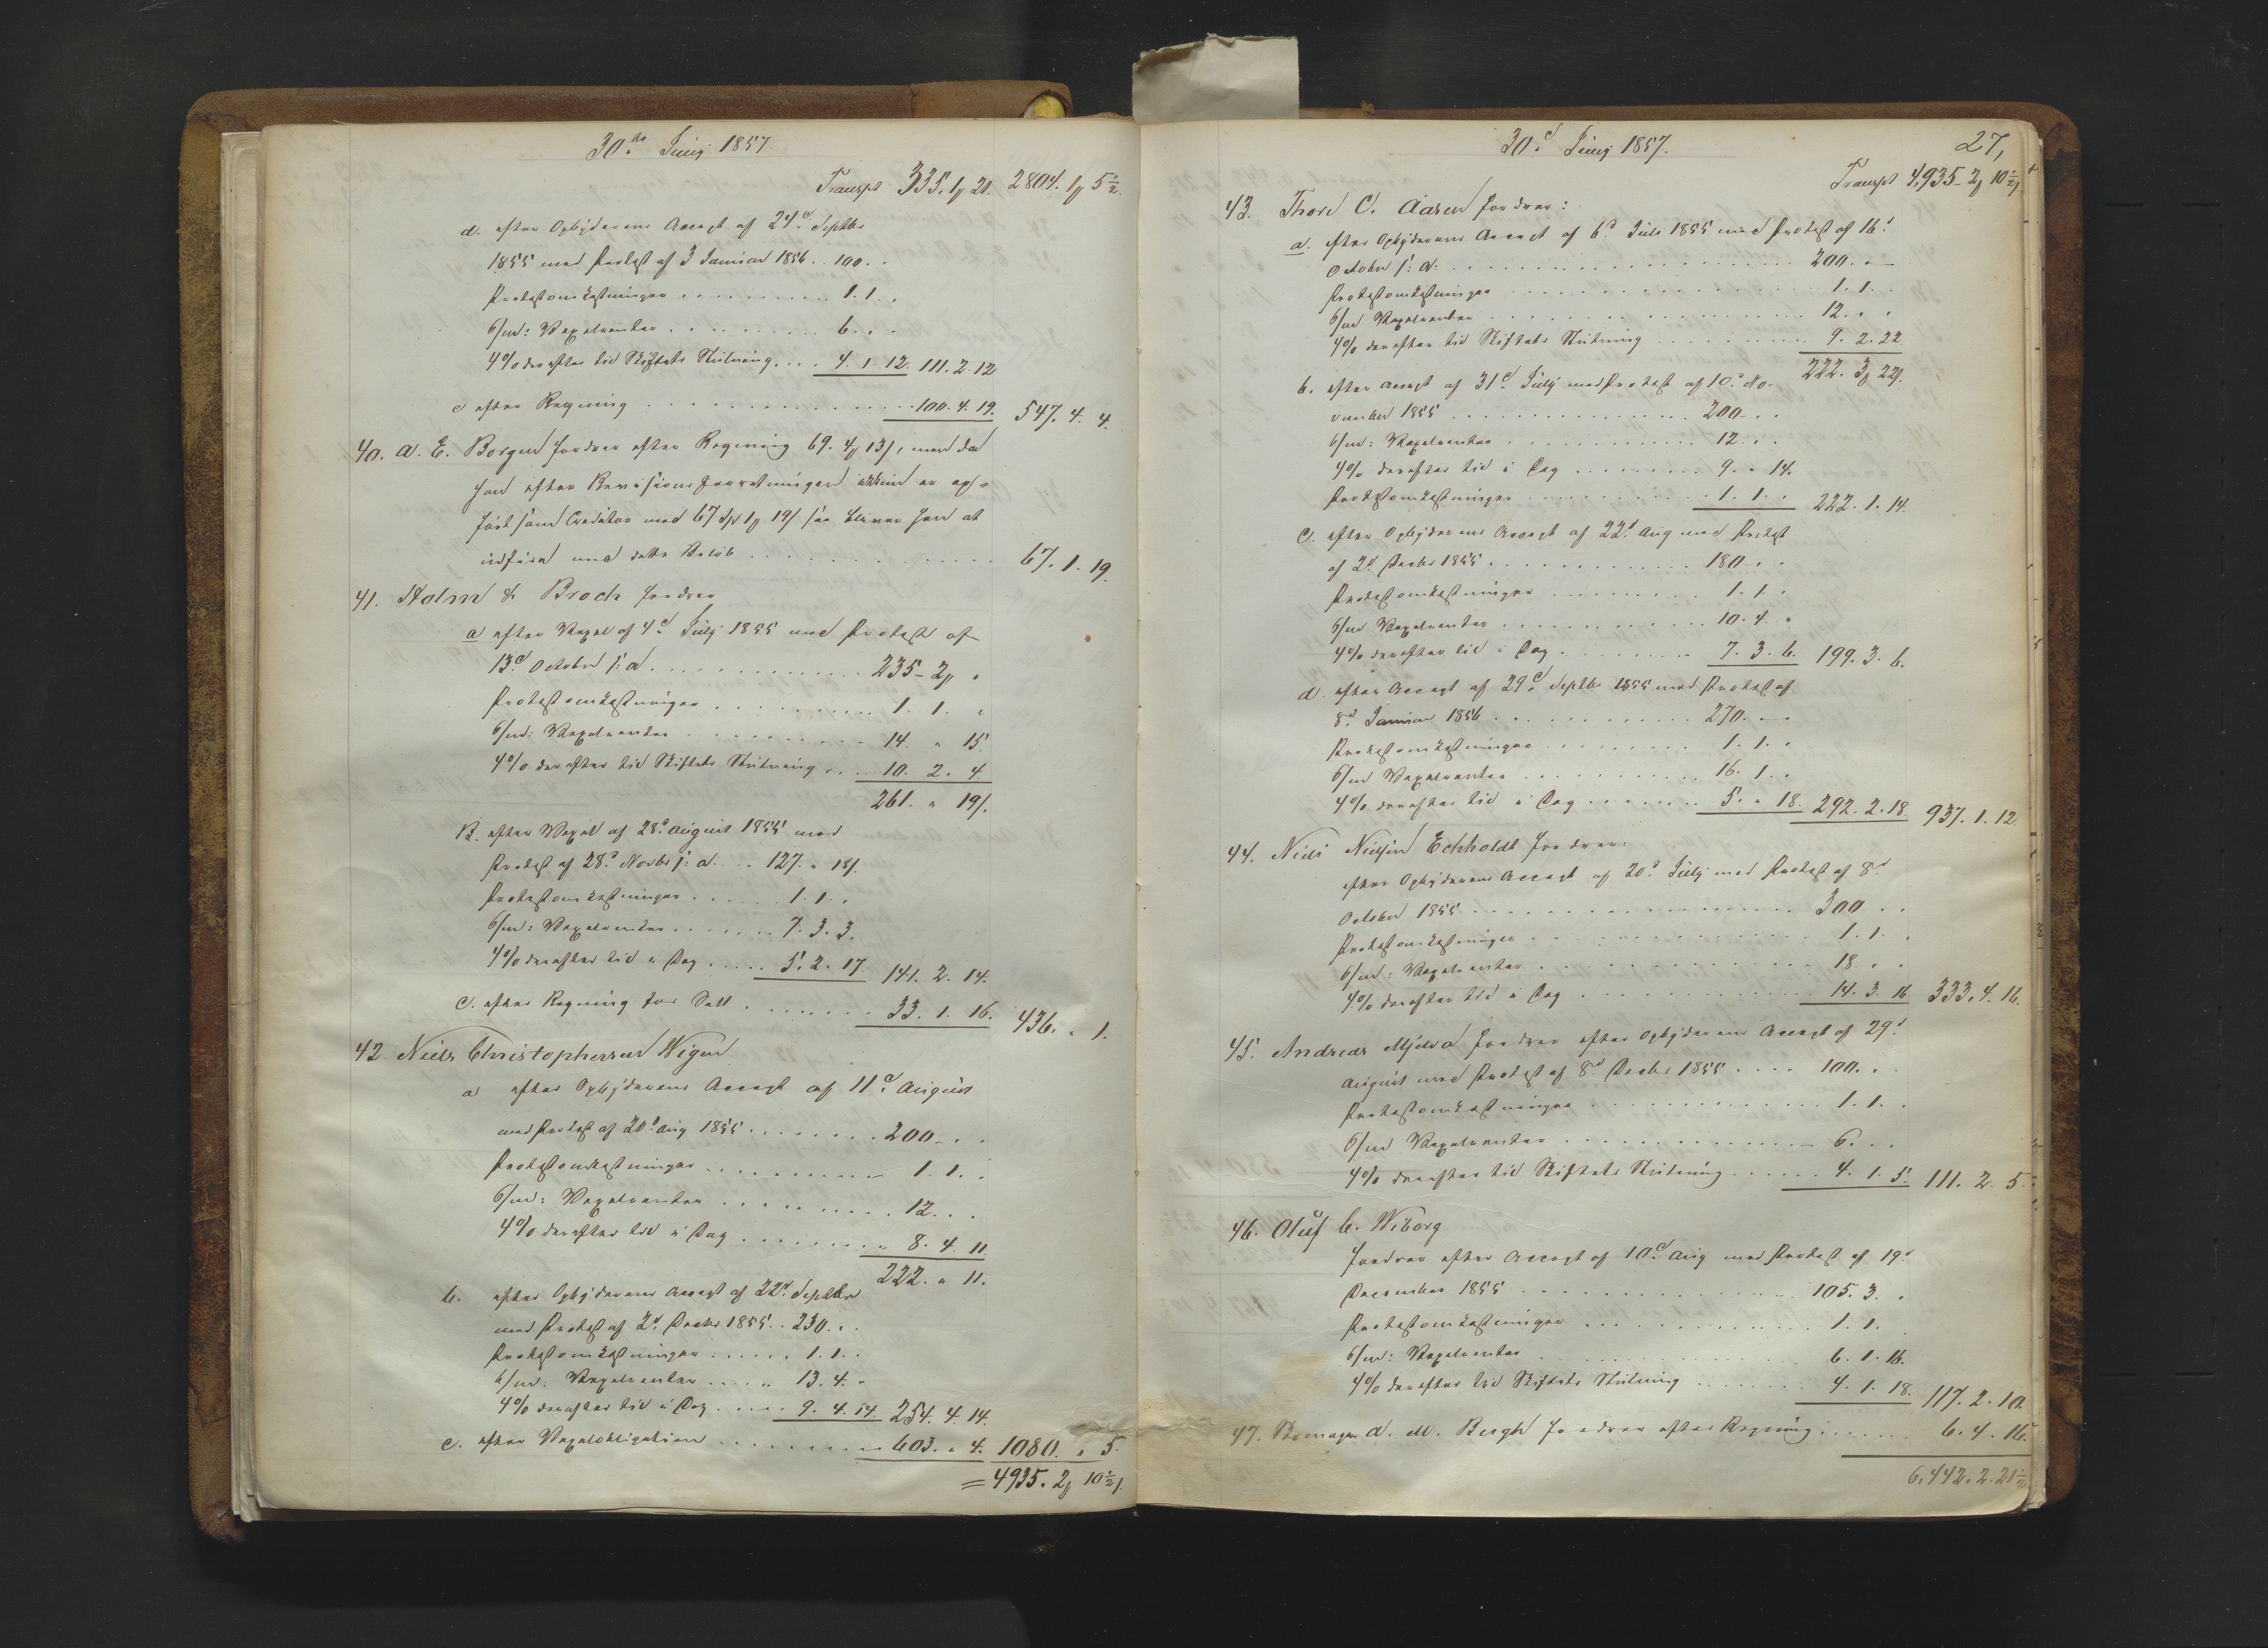 30te Junij 1857.
Transpt 335. 1 21. 2804. 1 5½.
d. efter Opbyderens Accept af 24d. Septbr
1855 med Protest af 3 Januar 1856 .. 100. .
Protestomkostninger . . . . . . . . 1. 1. .
6/md: Vexelrenter . . . . . . . . 6. . .
4% derefter til Skiftets Slutning . . . 4. 1. 12. 111. 2. 12
e efter Regning . . . . . . . . . . 100. 4. 19. 547. 4. 4.
40. A. E. Borgen fordrer efter Regning 69. 4 13, men da
han efter Revisionsforretningen er op-
ført som Creditor med 67 Spd 1 19 saa bliver han at
udføre med dette Beløb . . . . . . . . 67. 1. 19.
41. Holm & Broch fordrer
a efter Vexel af 4d. Julij 1855 med Protest af
13d. October s: A. . . . . . . . . . 235 - 2 "
Protestomkostninger . . . . . . . . 1. 1. "
6/md: Vexelrenter . . . . . . . . 14. " 15.
4% derefter til Skiftets Slutning . . . 10. 2. 4
261. " 19.
B. efter Vexel af 28d. August 1855 med
Protest af 28d. Novbr s: A. . . 127. " 18.
Protestomkostninger . . . . . 1. 1. .
6/md: Vexelrenter . . . . . . 7. 3. 3.
4% derefter til i Dag . . . . . 5. 2. 17. 141. 2. 14.
C. efter Regning for Salt . . . . . . . 33. 1. 16. 436. " 1.
42. Niels Christophersen Wigen
a efter Opbyderens Accept af 11d. August
med Protest af 20d. Aug 1855 . . . . . . . 200 - . .
Protestomkostninger . . . . . . . . 1. 1. .
6/md: Vexelrenter . . . . . . . . 12. . .
4% derefter til i Dag . . . . . . . 8. 4. 11.
222. " 11.
b. efter Opbyderens Accept af 22d. Septbr
med Protest af 2d. Decbr 1855 . . 230. . .
Protestomkostninger . . . . . 1. 1. .
6/md: Vexelrenter . . . . . 13. 4. "
4% derefter til i Dag . . . . . 9. 4. 14. 254. 4. 14.
c. efter Vexelobligation . . . . . . . . 603. " 4. 1080. " 5.
= 4935. 2 10½
30d. Junij 1857. 27,
Transpt 4,935 - 2 10½
43. Thore C. Aasen fordrer:
a. efter Opbyderens Accept af 6d. Juli 1855 med Protest af 16d.
October s: A. . . . . . . . . . . . . 200. . -
Protestomkostninger . . . . . . . . . . 1. 1. .
6/md Vexelrenter . . . . . . . . . . 12. . .
4% derefter til Skiftets Slutning . . . . . . 9. 2. 22
222. 3 22.
b. efter Accept af 31d. Julij med Protest af 10d. No-
vember 1855 . . . . . . . . . . 200 - . .
6/md: Vexelrenter . . . . . . . . . 12. . .
4% derefter til i Dag . . . . . . . 9. " 14.
Protestomkostninger . . . . . . . . 1. 1. . 222. 1. 14.
C. efter Opbyderens Accept af 22d. Aug med Protest
af 2d. Decbr 1855 . . . . . . . . . 180 - . .
Protestomkostninger . . . . . . . . 1. 1. .
6/md Vexelrenter . . . . . . . . . 10. 4. "
4% derefter til i Dag . . . . . . . 7. 3. 6. 199. 3. 6.
d. efter Accept af 29d. Septbr 1855 med Protest af
8d. Januar 1856 . . . . . . . . . 270. - -
Protestomkostninger . . . . . . . 1. 1. .
6/md Vexelrenter . . . . . . . . 16. 1. .
4% derefter til i Dag . . . . . . . 5. " 18. 292. 2. 18. 937. 1. 12.
44. Niels Nielsen Echholdt fordrer:
efter Opbyderens Accept af 20d. Julij med Protest af 8d
October 1855 . . . . . . . . . . . . . 300 . .
Protestomkostninger . . . . . . . . . . 1. 1. .
6/md: Vexelrenter . . . . . . . . . . 18. . .
4% derefter til i Dag . . . . . . . . . 14. 3. 16 333. 4. 16.
45. Andreas Mjelva fordrer efter Opbyderens Accept af 29d.
August med Protest af 8d. Decbr 1855 . . . . 100. . .
Protestomkostninger . . . . . . . . . . 1. 1. .
6/md Vexelrenter . . . . . . . . . . 6. . .
4% derefter til Skiftets Slutning . . . . . 4. 1. 5. 111. 2. 5.
46. Oluf C. Wiborg
fordrer efter Accept af 10d. Aug med Protest af 19d
December 1855 . . . . . . . . . . . 105. 3. .
Protestomkostninger . . . . . . . . . 1. 1. .
6/md: Vexelrenter . . . . . . . . . 6. 1. 16.
4% derefter til Skiftets Slutning . . . . . 4. 1. 18. 117. 2. 10.
47. Skomager A. M. Bergh fordrer efter Regning . . . . . 6. 4. 16.
6,442. 2. 21½